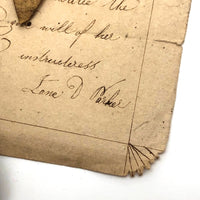 the
and will of her
instructress
Jane D Parker